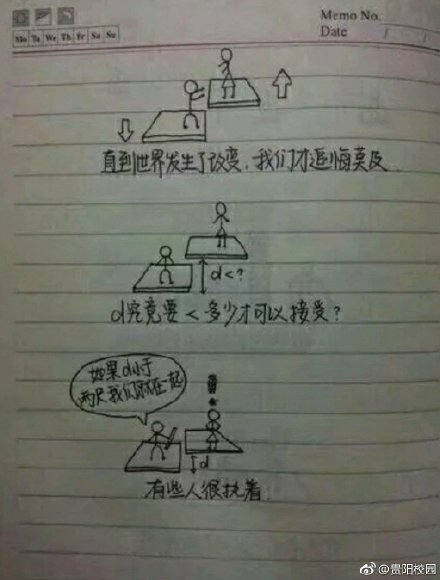 Memo No.
Mo Tu We Th Fr Sa Su
Date / /
直到世界发生了改变，我们才追悔莫及
d<?
d究竟要<多少才可以接受？
如果d小于
两尺我们就在一起
d
有些人很执着.
@贵阳校园